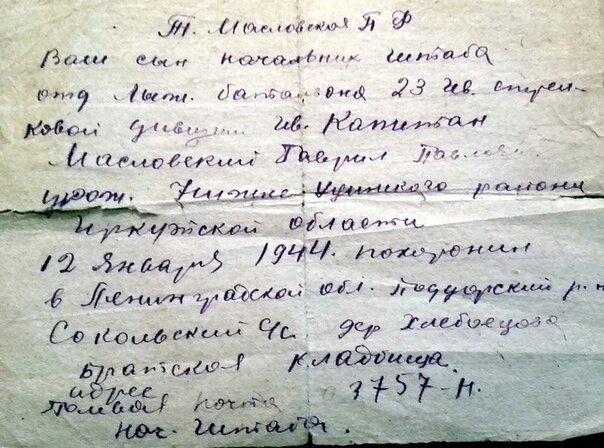 Т. Масловская П Ф
Ваш сын начальник штаба
отд лыж. батальона 23 гв. стрел-
ковой дивизии гв. Капитан
Масловский Гаврил Павлов
урож. Нижне-Удинского района
Иркутской области
12 Января 1944. похоронин
в Ленинградской обл. Поддорский р-н
Сокольский с/с. дер Хлебоедова
Братская кладбища.
адрес
полевая почта 3757-Н.
нач. штаба.